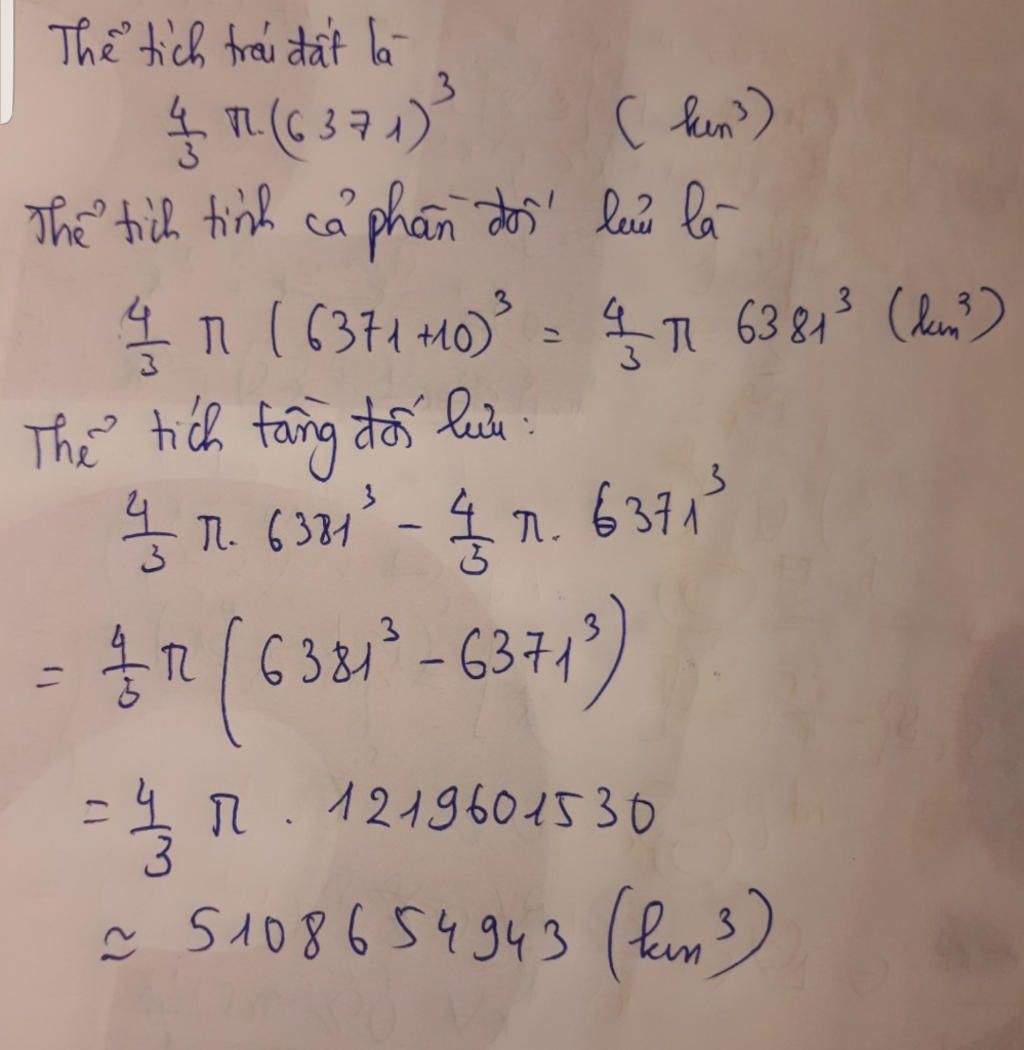 Thể tích trái đất là
4/3 π.(6371)³ (km³)
Thể tích tính cả phần đối lưu là
4/3 π (6371+10)³ = 4/3 π 6381³ (km³)
Thể tích tầng đối lưu:
4/3 π. 6381³ - 4/3 π. 6371³
= 4/3 π (6381³ - 6371³)
= 4/3 π . 1219601530
≈ 5108654943 (km³)